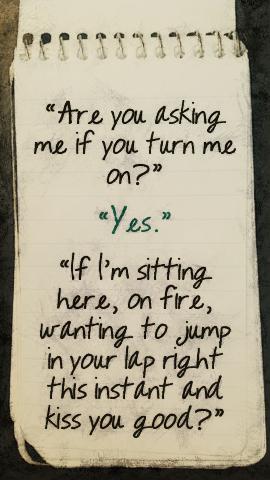 “Are you asking
me if you turn me
on?”
“Yes.”
“If I'm sitting
here, on fire,
wanting to jump
in your lap right
this instant and
kiss you good?”